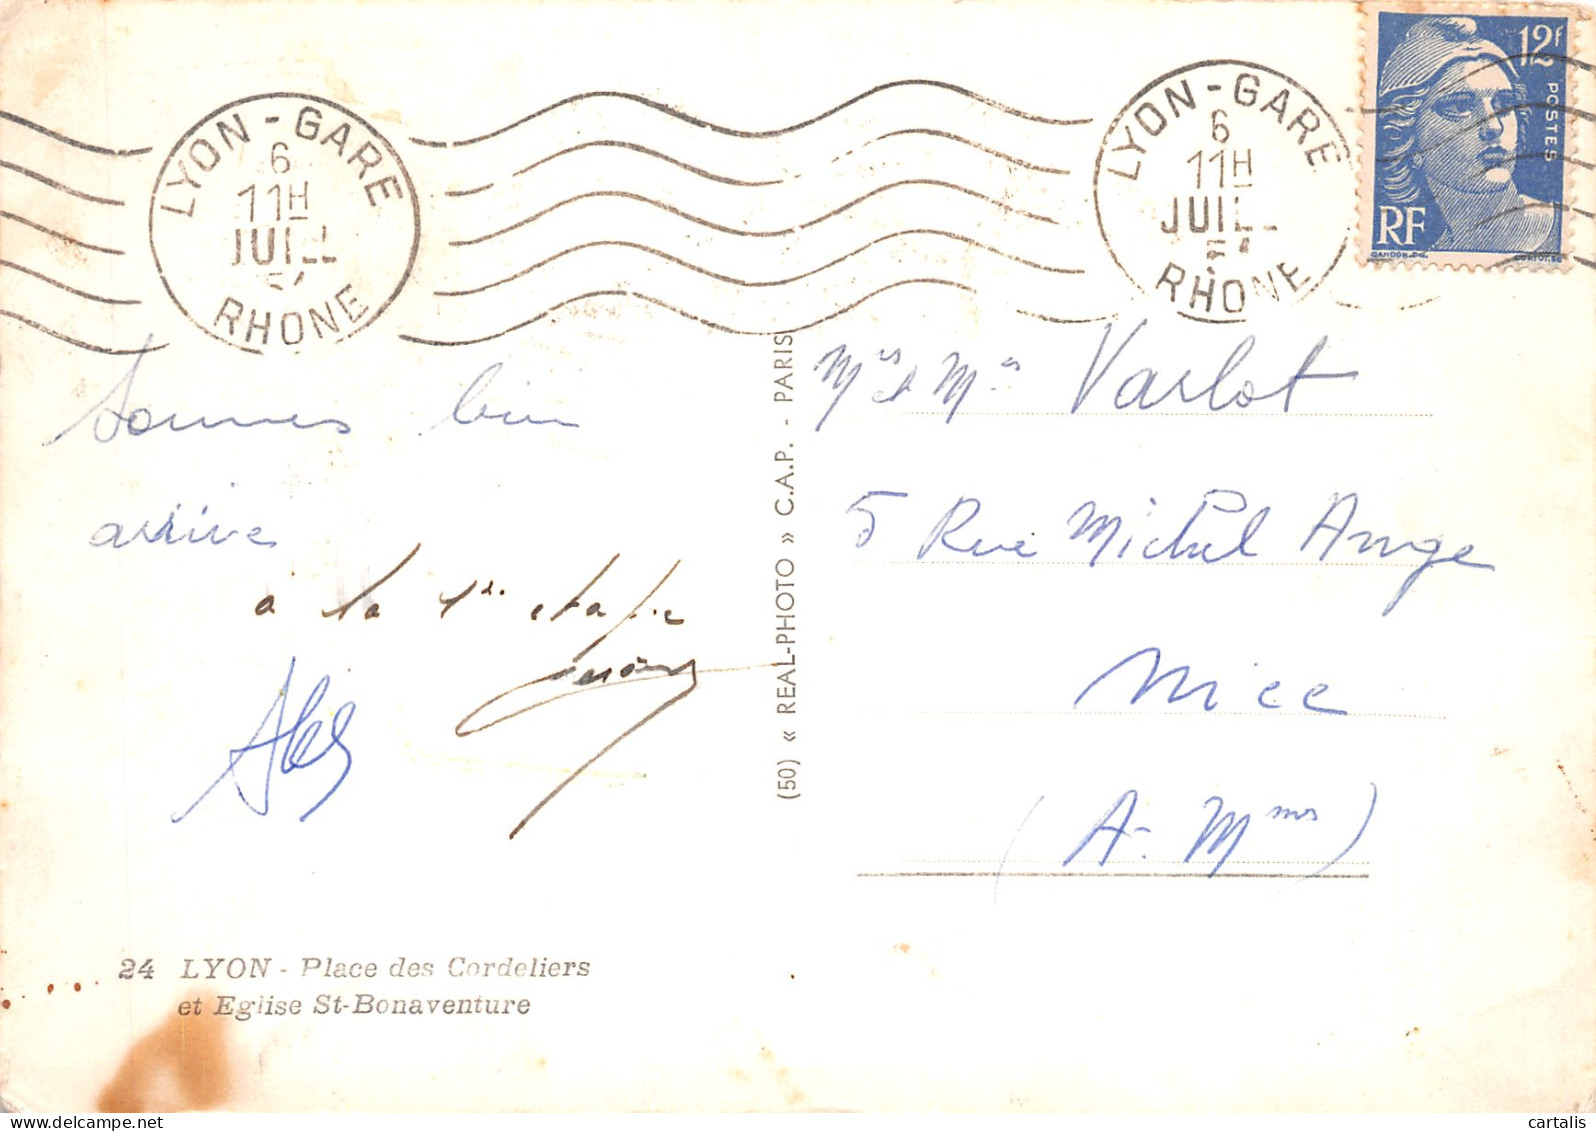 LYON-GARE
6
11H
JUIL
RHONE
LYON-GARE
6
11H
JUIL
RHONE
12F
POSTES
RF
GANDON DEL.
CORTOT.SC
Sommes bien
arrivés
à la 1re etape
Mrs et Me Varlot
5 Rue Michel Ange
Nice
(A-Mmes)
(50) « REAL-PHOTO » C.A.P. - PARIS
24 LYON - Place des Cordeliers
et Eglise St-Bonaventure
cartalis
www.delcampe.net